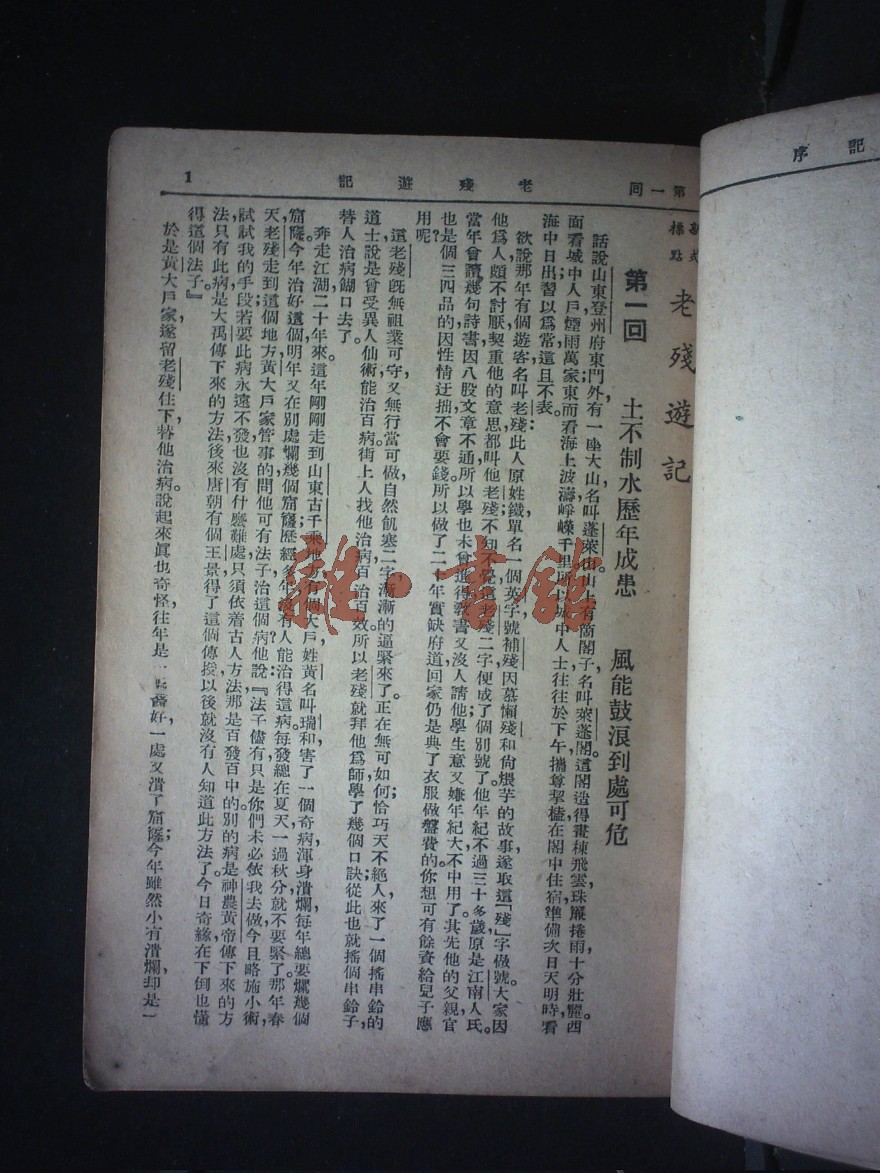 記序
第一回
老殘遊記
1
新式
標點
老殘遊記
第一回 土不制水歷年成患 風能鼓浪到處可危
話說山東登州府東門外,有一座大山,名叫蓬萊山。山上有箇閣子,名叫萊蓬閣。這閣造得畫棟飛雲,珠簾捲雨,十分壯麗。西
面看城中人戶,煙雨萬家;東而看海上波濤,崢嶸千里。所以城中人士往往於下午攜尊挈榼,在閣中住宿,準備次日天明時,看
海中日出,習以為常。這且不表。
欲說那年有個遊客,名叫老殘。此人原姓鐵,單名一個英字,號補殘;因慕懶殘和尚煨芋的故事,遂取這「殘」字做號。大家因
他為人頗不討厭,契重他的意思,都叫他老殘;不知不覺,這老殘二字便成了個別號了。他年紀不過三十多歲,原是江南人氏。
當年曾讀幾句詩書,因八股文章不通,所以學也未曾進得;教書又沒人請他;學生意又嫌年紀大,不中用了。其先他的父親官
也是個三四品的,因性情迂拙,不會要錢;所以做了二十年實缺府道,回家仍是典了衣服做盤費的。你想可有餘資給兒子應
用呢?
這老殘旣無祖業可守,又無行當可做,自然飢寒二字漸漸的逼緊來了。正在無可如何,恰巧天不絕人,來了一個搖串鈴的
道士,說是曾受異人仙術,能治百病;街上人找他治病,百治百效。所以老殘就拜他為師,學了幾個口訣,從此也就搖個串鈴子,
替人治病餬口去了。
奔走江湖二十年來。這年剛剛走到山東古千乘地方,有個大戶,姓黃,名叫瑞和,害了一個奇病,渾身潰爛,每年總要爛幾個
窟窿。今年治好這個,明年又在別處爛幾個窟窿;歷經多年,沒有人能治得這病。每發總在夏天,一過秋分就不要緊了。那年春
天,老殘走到這個地方,黃大戶家管事的問他可有法子治這個病?他說:『法子儘有,只是你們未必依我去做。今且略施小術,
試試我的手段;若要此病永遠不發,也沒有什麽難處,只須依着古人方法,那是百發百中的。別的病是神農黃帝傳下來的方
法,只有此病是大禹傳下來的方法。後來唐朝有個王景得了這個傳授,以後就沒有人知道此方法了。今日奇緣,在下倒也懂
得這個法子。』
於是黃大戶家遂留老殘住下,替他治病。說起來眞也奇怪,往年是一處醫好,一處又潰了窟窿;今年雖然小有潰爛,却是一
雜·書館